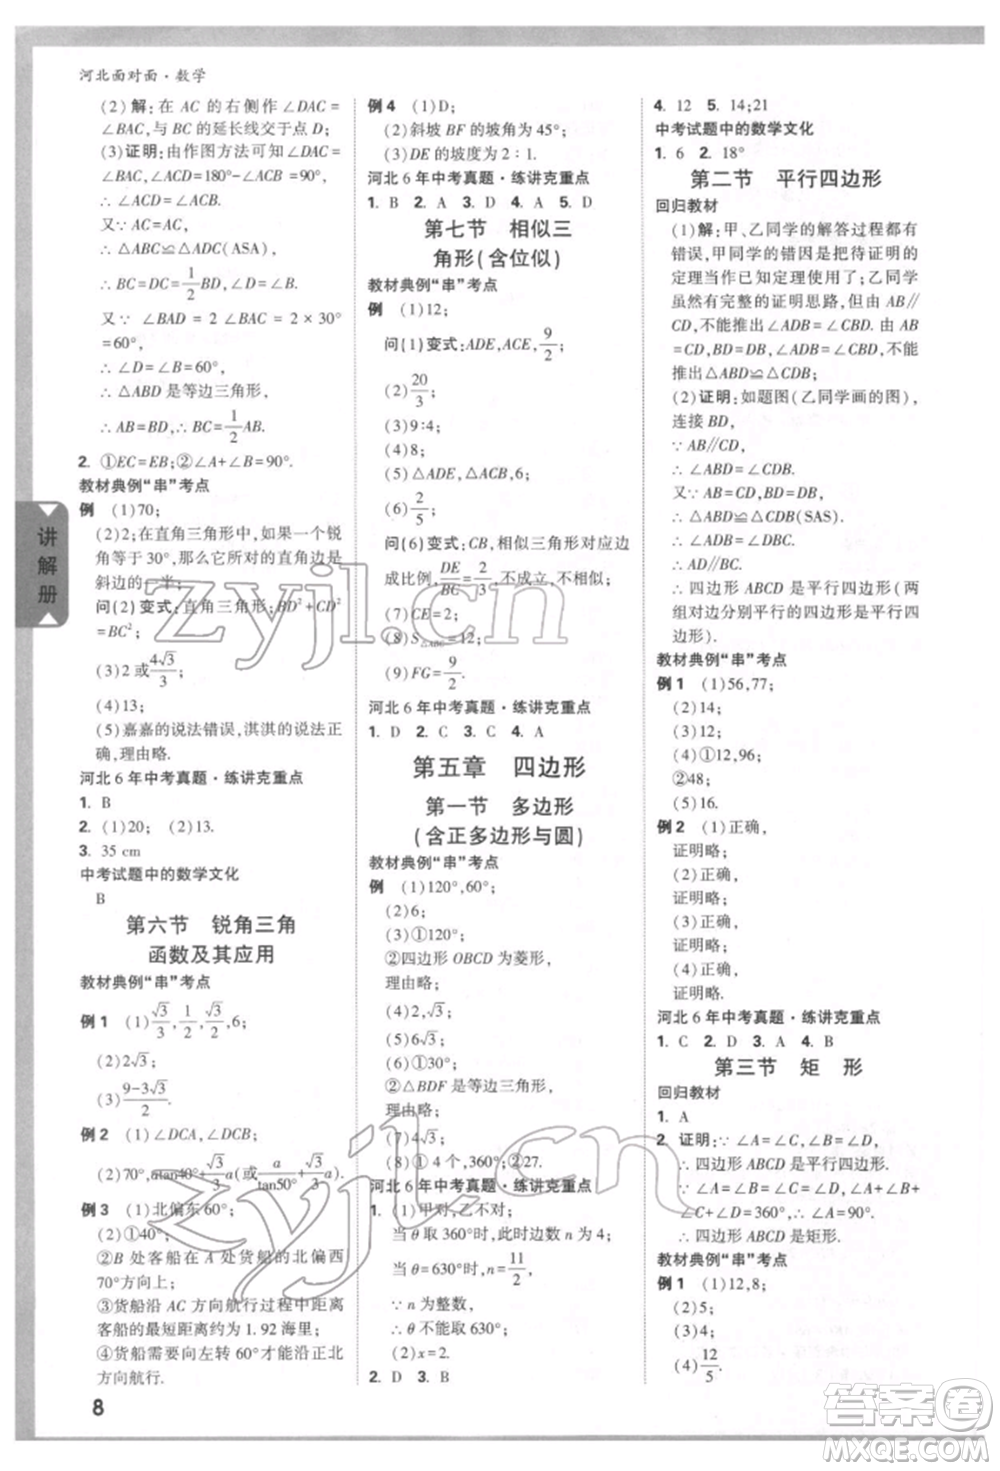 河北面对面·数学
(2)解:在 AC 的右侧作 ∠DAC=
∠BAC,与 BC 的延长线交于点 D;
(3)证明:由作图方法可知 ∠DAC=
∠BAC,∠ACD=180°-∠ACB=90°,
∴ ∠ACD=∠ACB.
又∵ AC=AC,
∴ △ABC≌△ADC(ASA),
∴ BC=DC=1/2 BD.
又∵ ∠BAD = 2 ∠BAC = 2 × 30°
=60°,
∴ ∠D=∠B=60°,
∴ △ABD 是等边三角形,
∴ AB=BD,∴ BC=1/2 AB.
2. ①EC=EB;②∠A+∠B=90°.
教材典例“串”考点
例 (1)70;
(2)2;在直角三角形中,如果一个锐
角等于30°,那么它所对的直角边是
斜边的一半;
问(2)变式:直角三角形;BD²+CD²
=BC²;
(3)2 或 4√3/3;
(4)13;
(5)嘉嘉的说法错误,淇淇的说法正
确,理由略.
河北6年中考真题·练讲克重点
1. B
2. (1)20; (2)13.
3. 35 cm
中考试题中的数学文化
B
第六节 锐角三角
函数及其应用
教材典例“串”考点
例1 (1)√3/3,1/2,√3/2,6;
(2)√3/3;
(3)(9-3√3)/2.
例2 (1)∠DCA,∠DCB;
(2)70°,atan40°+√3/3 a(或 a/tan50°+√3/3 a)
例3 (1)北偏东60°;
(2)①40°;
②B 处客船在 A 处货船的北偏西
70°方向上;
③货船沿 AC 方向航行过程中距离
客船的最短距离约为1.92海里;
④货船需要向左转60°才能沿正北
方向航行.
8
讲解册
例4 (1)D;
(2)斜坡 BF 的坡角为45°;
(3)DE 的坡度为2∶1.
河北6年中考真题·练讲克重点
1. B 2. A 3. D 4. A 5. D
第七节 相似三
角形(含位似)
教材典例“串”考点
例 (1)12;
问(1)变式:ADE,ACE,9/2;
(2)20/3;
(3)9∶4;
(4)8;
(5)△ADE,△ABC,6;
(6)2/5;
问(6)变式:CB,相似三角形对应边
成比例,DE/BC=2/3,不成立,不相似;
(7)CE=2;
(8)S△ABC=12;
(9)FG=9/2.
河北6年中考真题·练讲克重点
1. D 2. C 3. C 4. A
第五章 四边形
第一节 多边形
(含正多边形与圆)
教材典例“串”考点
例 (1)120°,60°;
(2)6;
(3)①120°;
②四边形 OBCD 为菱形,
理由略;
(4)2,√3;
(5)6√3;
(6)①90°;
②△BDF 是等边三角形,
理由略;
(7)4√3;
(8)①4个,②27.
河北6年中考真题·练讲克重点
1. (1)甲对,乙不对;
当 θ 取360°时,此时边数 n 为4;
当 θ=630°时,n=11/2,
∵ n 为整数,
∴ θ 不能取630°;
(2)x=2.
2. D 3. B
4. 12 5. 14;21
中考试题中的数学文化
1. 6 2. 18°
第二节 平行四边形
回归教材
(1)解:甲、乙同学的解答过程都有
错误,甲同学的错误是把待证明的
定理当作已知定理来用;乙同学
虽然有完整的证明思路,但由 AB∥
CD,不能推出∠ADB=∠CBD,不能
推出△ADB≌△CBD;
(2)证明:如题图(乙同学画的图),
连接 BD,
∵ AB∥CD,
∴ ∠ABD=∠CDB.
又∵ AB=CD,BD=DB,
∴ △ABD≌△CDB(SAS).
∴ ∠ADB=∠CBD,
∴ AD∥BC.
∴ 四边形 ABCD 是平行四边形(两
组对边分别平行的四边形是平行四
边形).
教材典例“串”考点
例1 (1)56,77;
(2)14;
(3)12;
(4)①12,96;
②48;
(5)16.
例2 (1)正确,
证明略;
(2)正确,
证明略;
(3)正确,
证明略;
(4)正确,
证明略.
河北6年中考真题·练讲克重点
1. C 2. D 3. A 4. B
第三节 矩 形
回归教材
1. A
2. 证明:∵ ∠A=∠C,∠B=∠D,
∴ 四边形 ABCD 是平行四边形.
∵ ∠A=∠B=∠C=∠D,∠A+∠B
+∠C+∠D=360°,∴ ∠A=90°.
∴ 四边形 ABCD 是矩形.
教材典例“串”考点
例1 (1)12,8;
(2)5;
(3)4;
(4)12/5;
zyjl.cn
zyjl.cn
答案圈
MXQE.COM